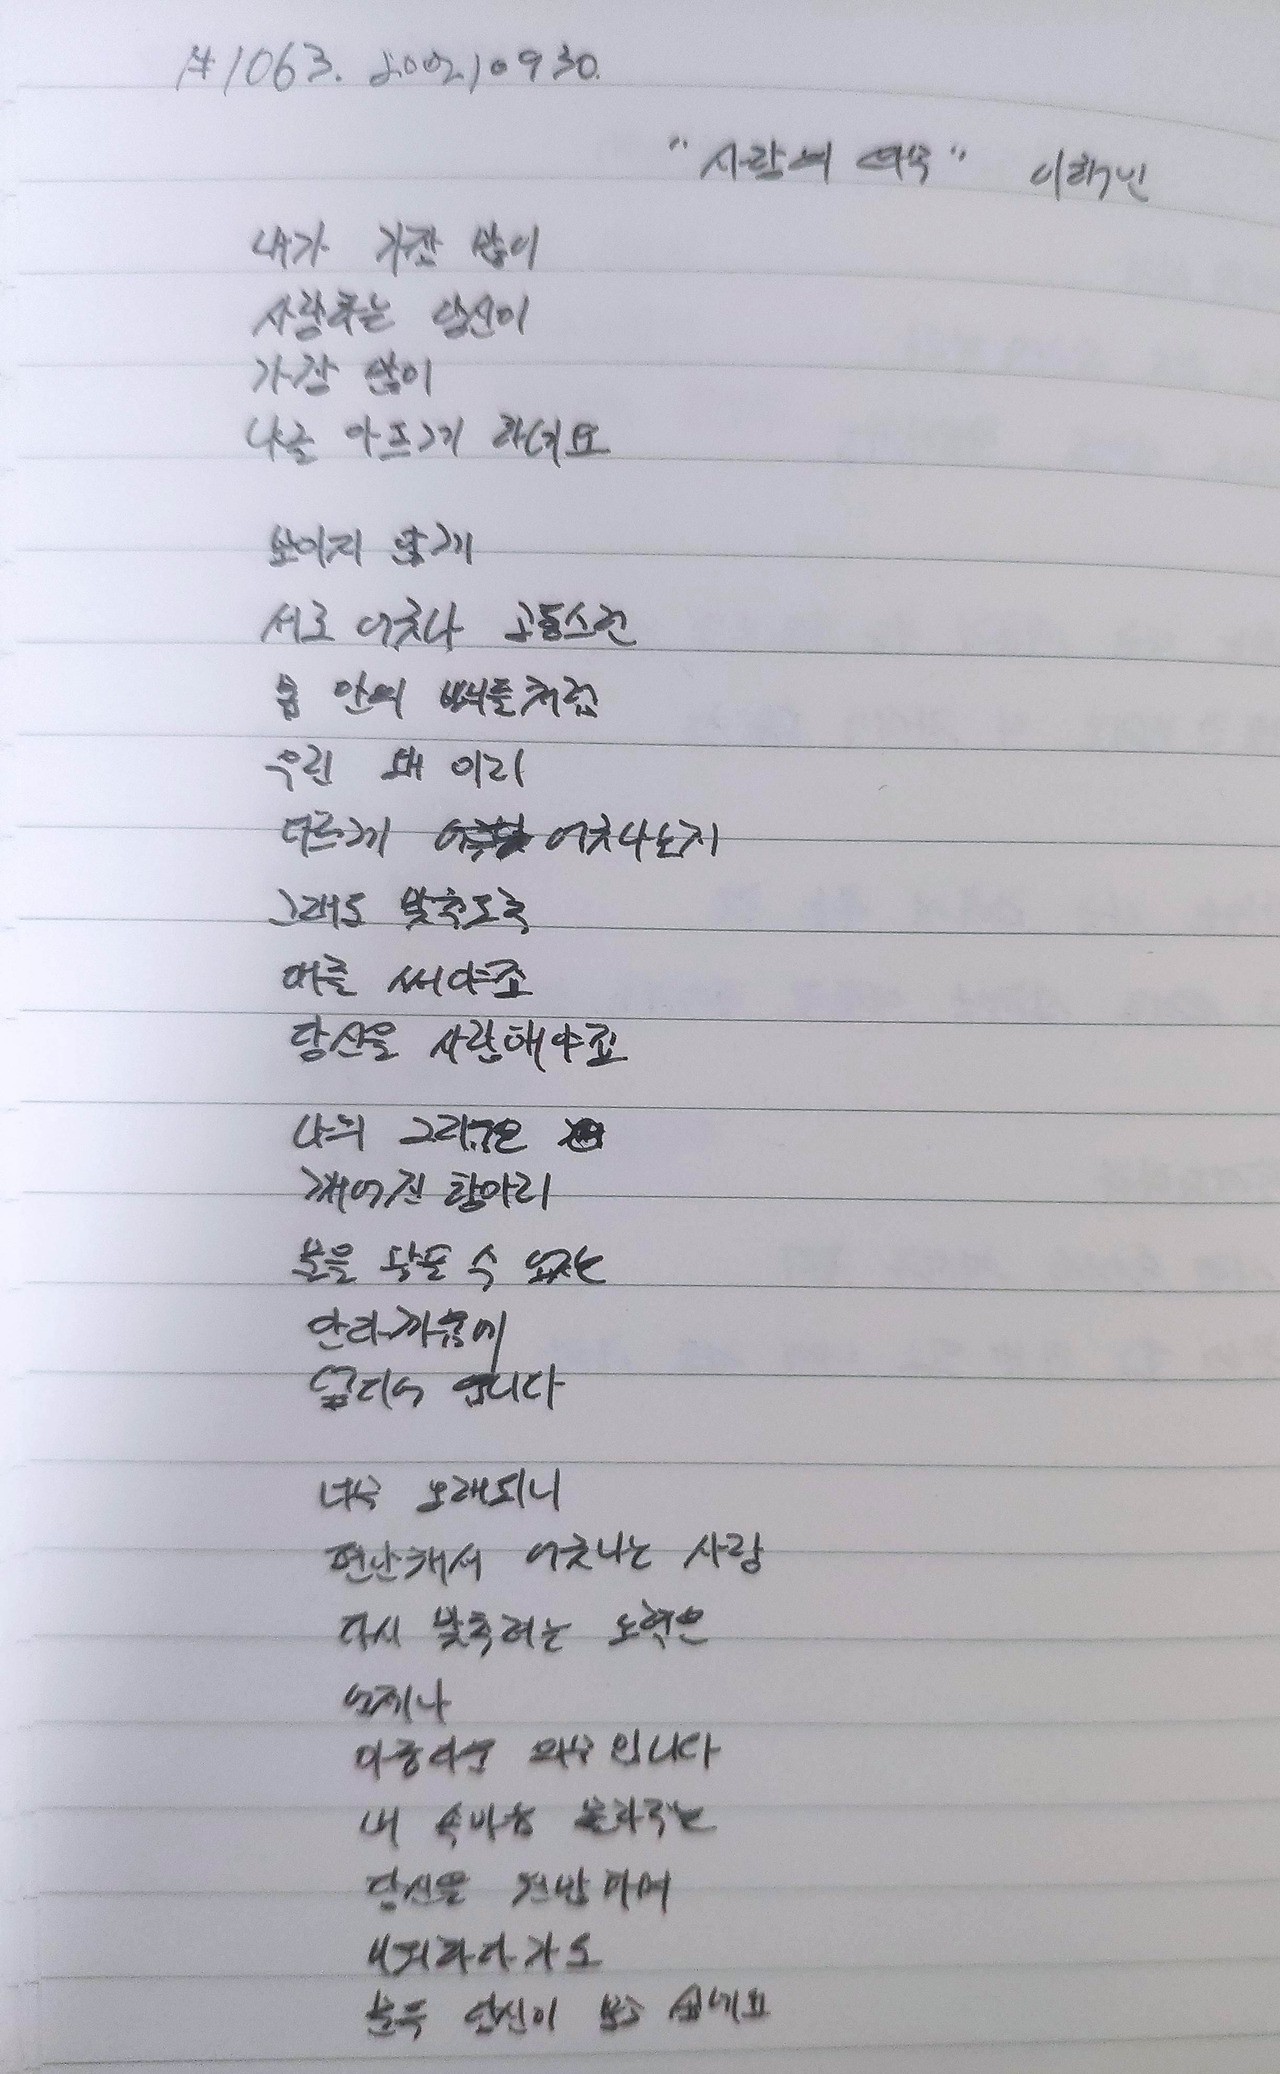 #1063. 200210930.
"사랑의 여욱" 이해인
내가 가장 많이
사랑하는 당신이
가장 많이
나를 아프게 하네요
보이지 않게
서로 어긋나 고통스런
몸 안의 뼈들처럼
우린 왜 이리
다르게 어긋나는지
그래도 맞추도록
애를 써야죠
당신을 사랑해야죠
나의 그리움은
깨어진 항아리
물을 담을 수 없는
안타까움에
엎디어 웁니다
너무 오래되니
편안해서 어긋나는 사랑
다시 맞추려는 노력은
언제나
아름다운 의무입니다
내 속마음 몰라주는
당신을 원망하며
미워하다가도
문득 당신이 보고 싶네요